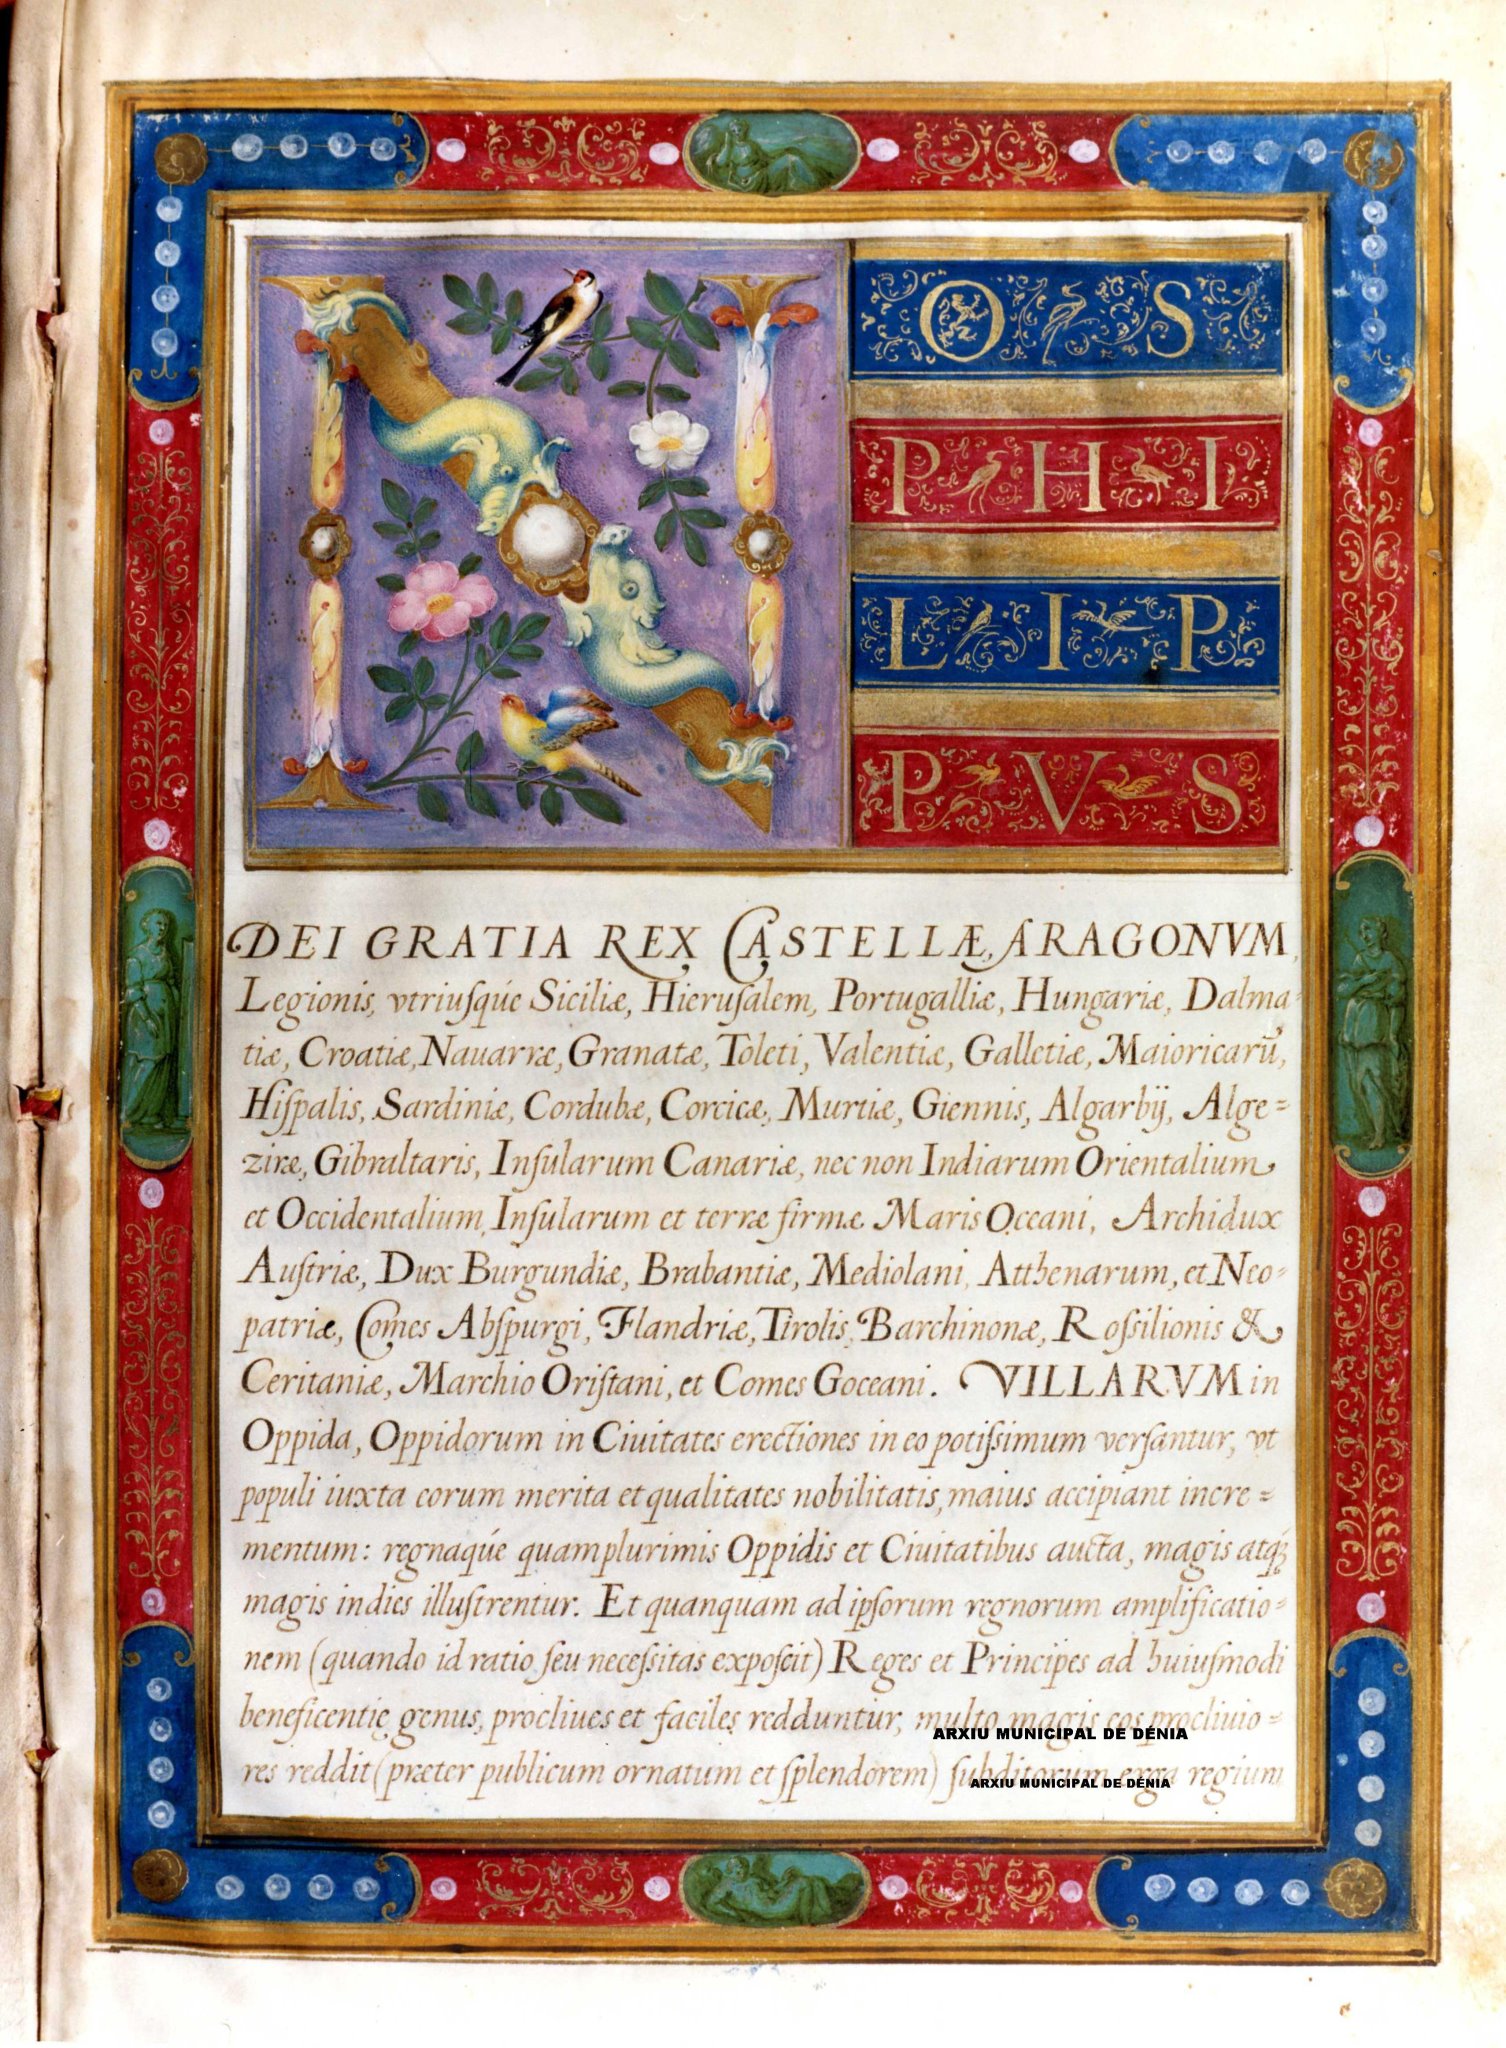 NOS
PHI
LIP
PVS
DEI GRATIA REX CASTELLÆ, ARAGONVM,
Legionis, vtriuſqúe Siciliæ, Hieruſalem, Portugalliæ, Hungariæ, Dalma-
tiæ, Croatiæ, Nauarræ, Granatæ, Toleti, Valentiæ, Galletiæ, Maioricarū,
Hiſpalis, Sardiniæ, Cordubæ, Corcicæ, Murtiæ, Giennis, Algarbij, Alge=
ziræ, Gibraltaris, Inſularum Canariæ, nec non Indiarum Orientalium
et Occidentalium, Inſularum et terræ firmæ Maris Oceani, Archidux
Auſtriæ, Dux Burgundiæ, Brabantiæ, Mediolani, Atthenarum, et Neo-
patriæ, Comes Abſpurgi, Flandriæ, Tirolis, Barchinonæ, Roſsilionis &
Ceritaniæ, Marchio Oriſtani, et Comes Goceani. VILLARVM in
Oppida, Oppidorum in Ciuitates erectiones in eo potiſsimum verſantur, vt
populi iuxta eorum merita et qualitates nobilitatis, maius accipiant incre=
mentum: regnaqúe quamplurimis Oppidis et Ciuitatibus aucta, magis atq́;
magis indies illuſtrentur. Et quanquam ad ipſorum regnorum amplificatio-
nem (quando id ratio ſeu neceſsitas expoſcit) Reges et Principes ad huiuſmodi
beneficentię genus, procliues et faciles redduntur, multo magis eos procliuio=
res reddit (præter publicum ornatum et ſplendorem) ſubditorum erga regium
ARXIU MUNICIPAL DE DÉNIA
ARXIU MUNICIPAL DE DÉNIA